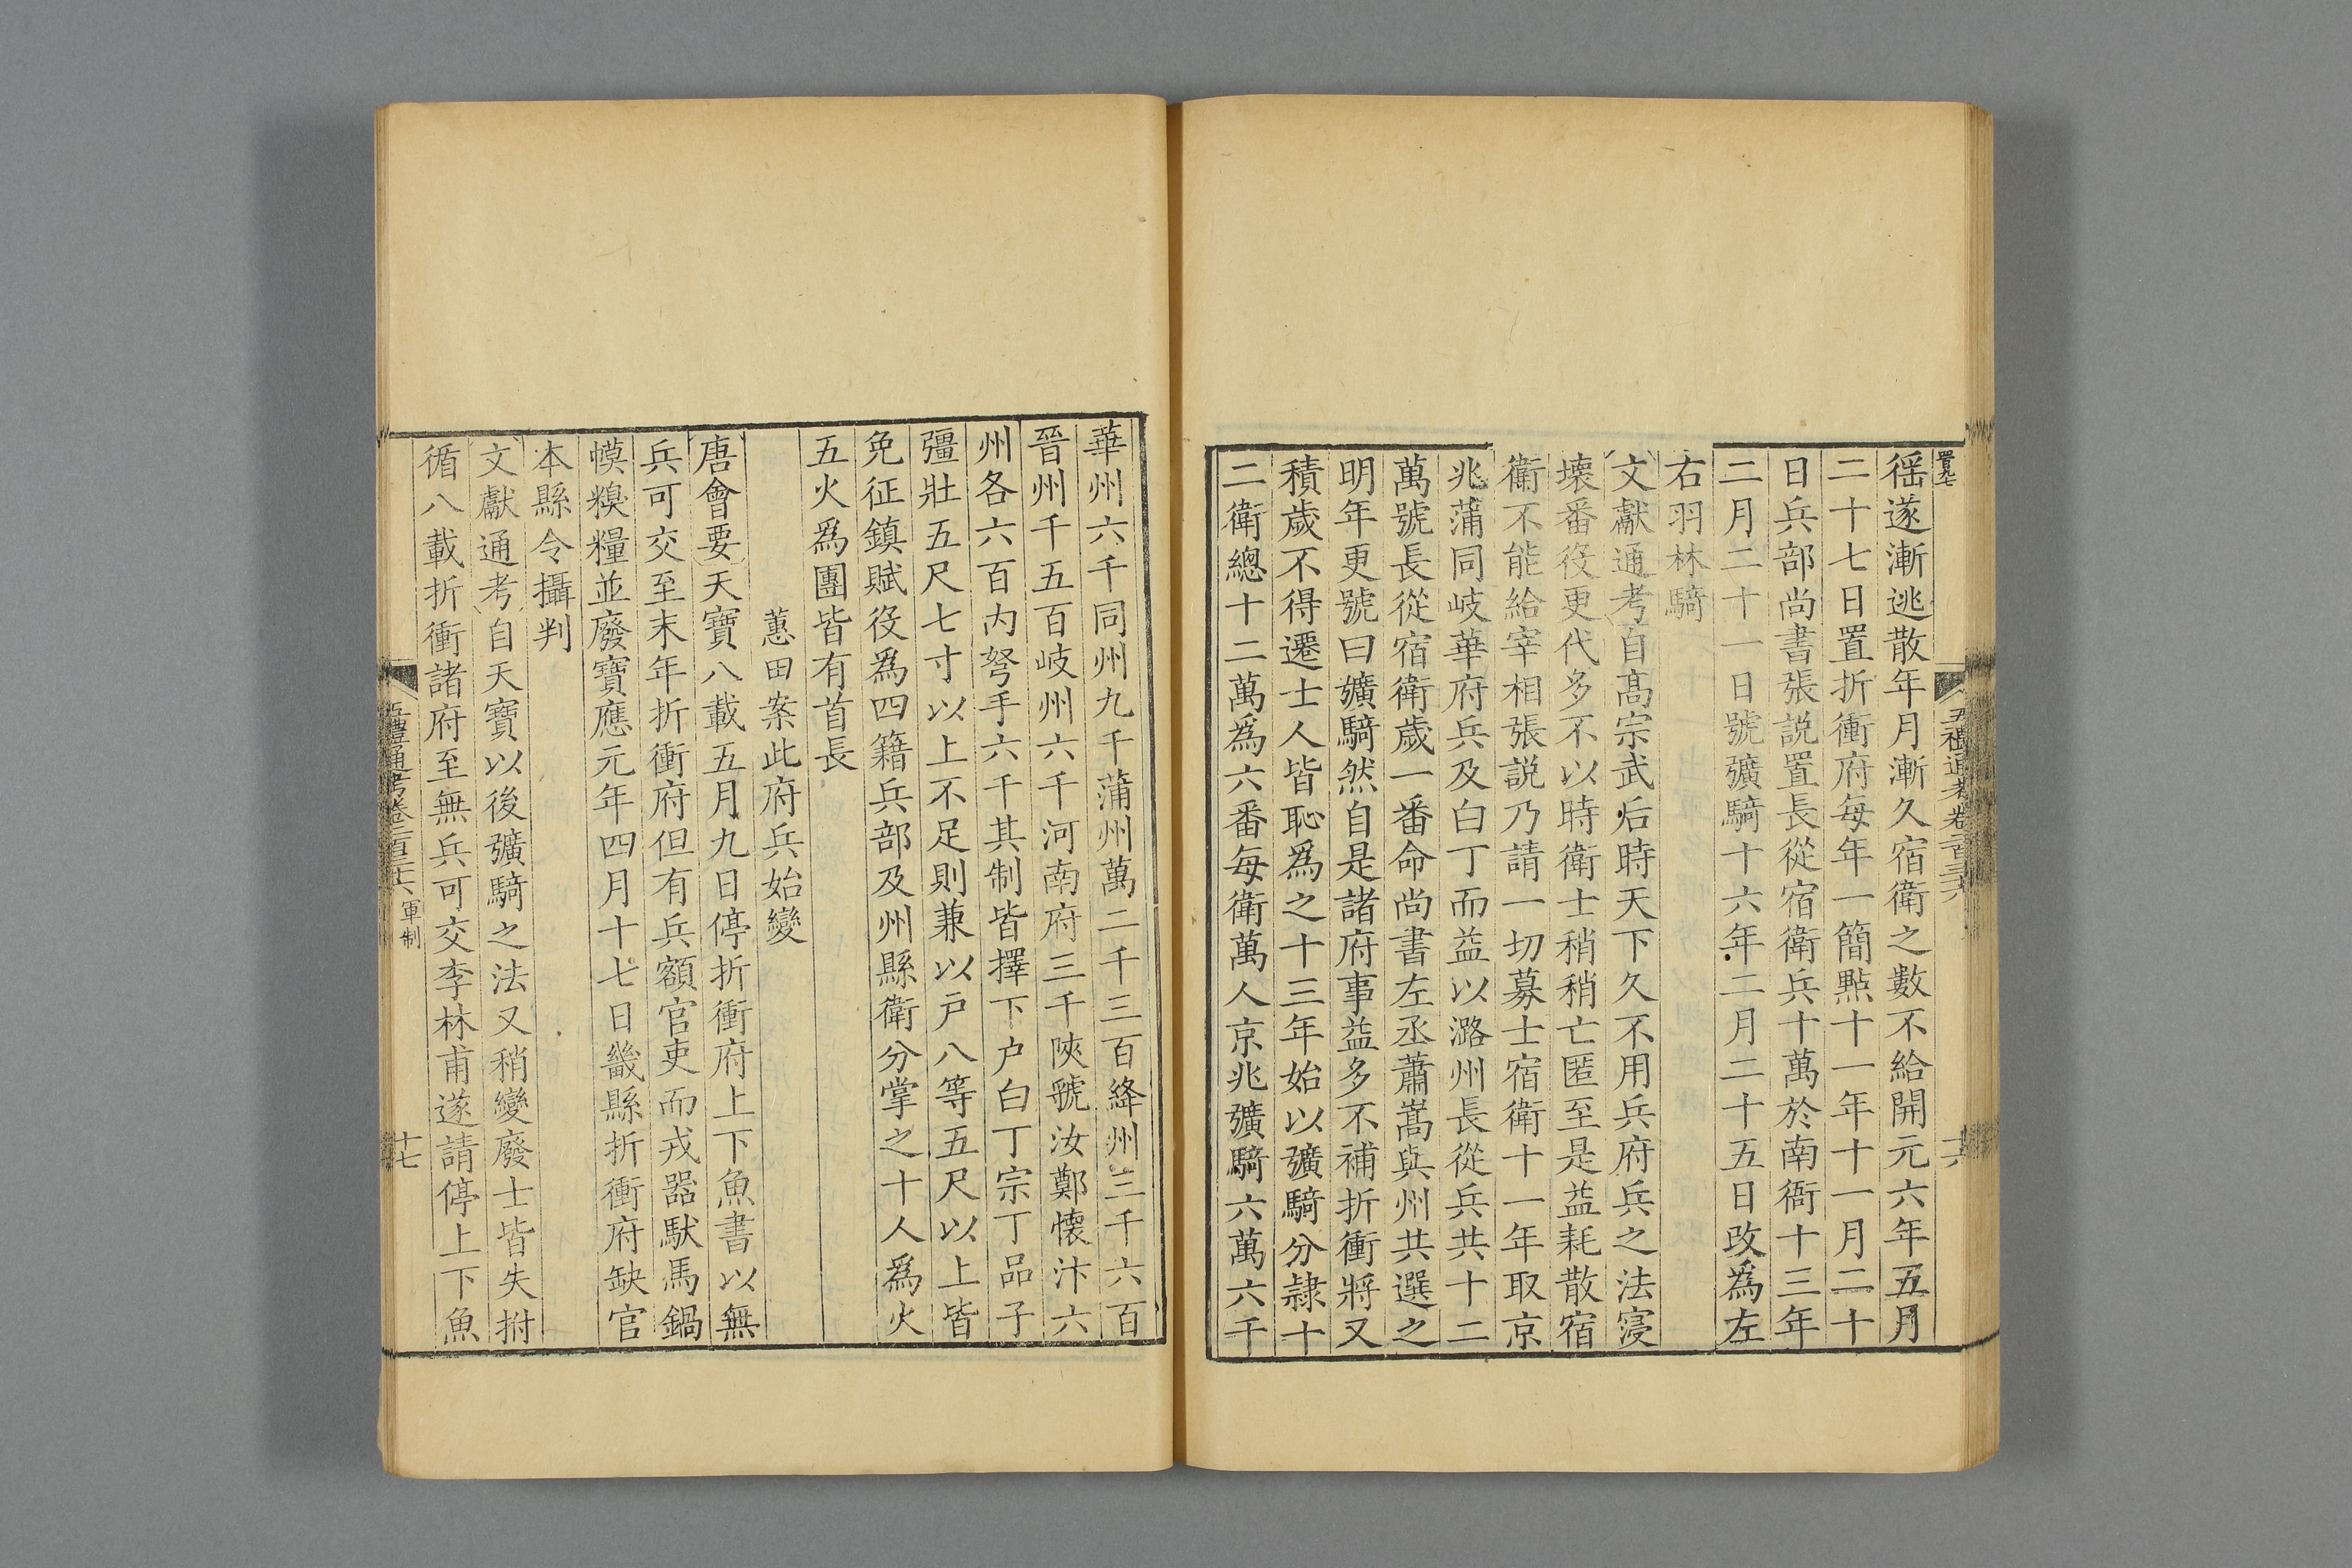 徭遂漸逃散年月漸久宿衛之數不給開元六年五月
二十七日置折衝府每年一簡點十一年十一月二十
日兵部尚書張説置長從宿衛兵十萬於南衙十三年
二月二十一日號彍騎十六年二月二十五日改爲左
右羽林騎
文獻通考自髙宗武后時天下久不用兵府兵之法寖
壊番役更代多不以時衛士稍稍亡匿至是益耗散宿
衛不能給宰相張説乃請一切募士宿衛十一年取京
兆蒲同岐華府兵及白丁而益以潞州長從兵共十二
萬號長從宿衛歲一番命尚書左丞蕭嵩與州共選之
明年更號曰彍騎然自是諸府事益多不補折衝將又
積歲不得遷士人皆恥爲之十三年始以彍騎分隸十
二衛總十二萬爲六番每衛萬人京兆彍騎六萬六千
華州六千同州九千蒲州萬二千三百絳州三千六百
晉州千五百岐州六千河南府三千陜虢汝鄭懐汴六
州各六百内弩手六千其制皆擇下户白丁宗丁品子
彊壯五尺七寸以上不足則兼以戸八等五尺以上皆
免征鎮賦役爲四籍兵部及州縣衛分掌之十人爲火
五火爲團皆有首長
蕙田案此府兵始變
唐會要天寶八載五月九日停折衝府上下魚書以無
兵可交至末年折衝府但有兵額官吏而戎器馱馬鍋
幙糗糧並廢寶應元年四月十七日畿縣折衝府缺官
本縣令攝判
文獻通考自天寶以後彍騎之法又稍變廢士皆失拊
循八載折衝諸府至無兵可交李林甫遂請停上下魚
五禮通考卷二百三十六 軍制
十七